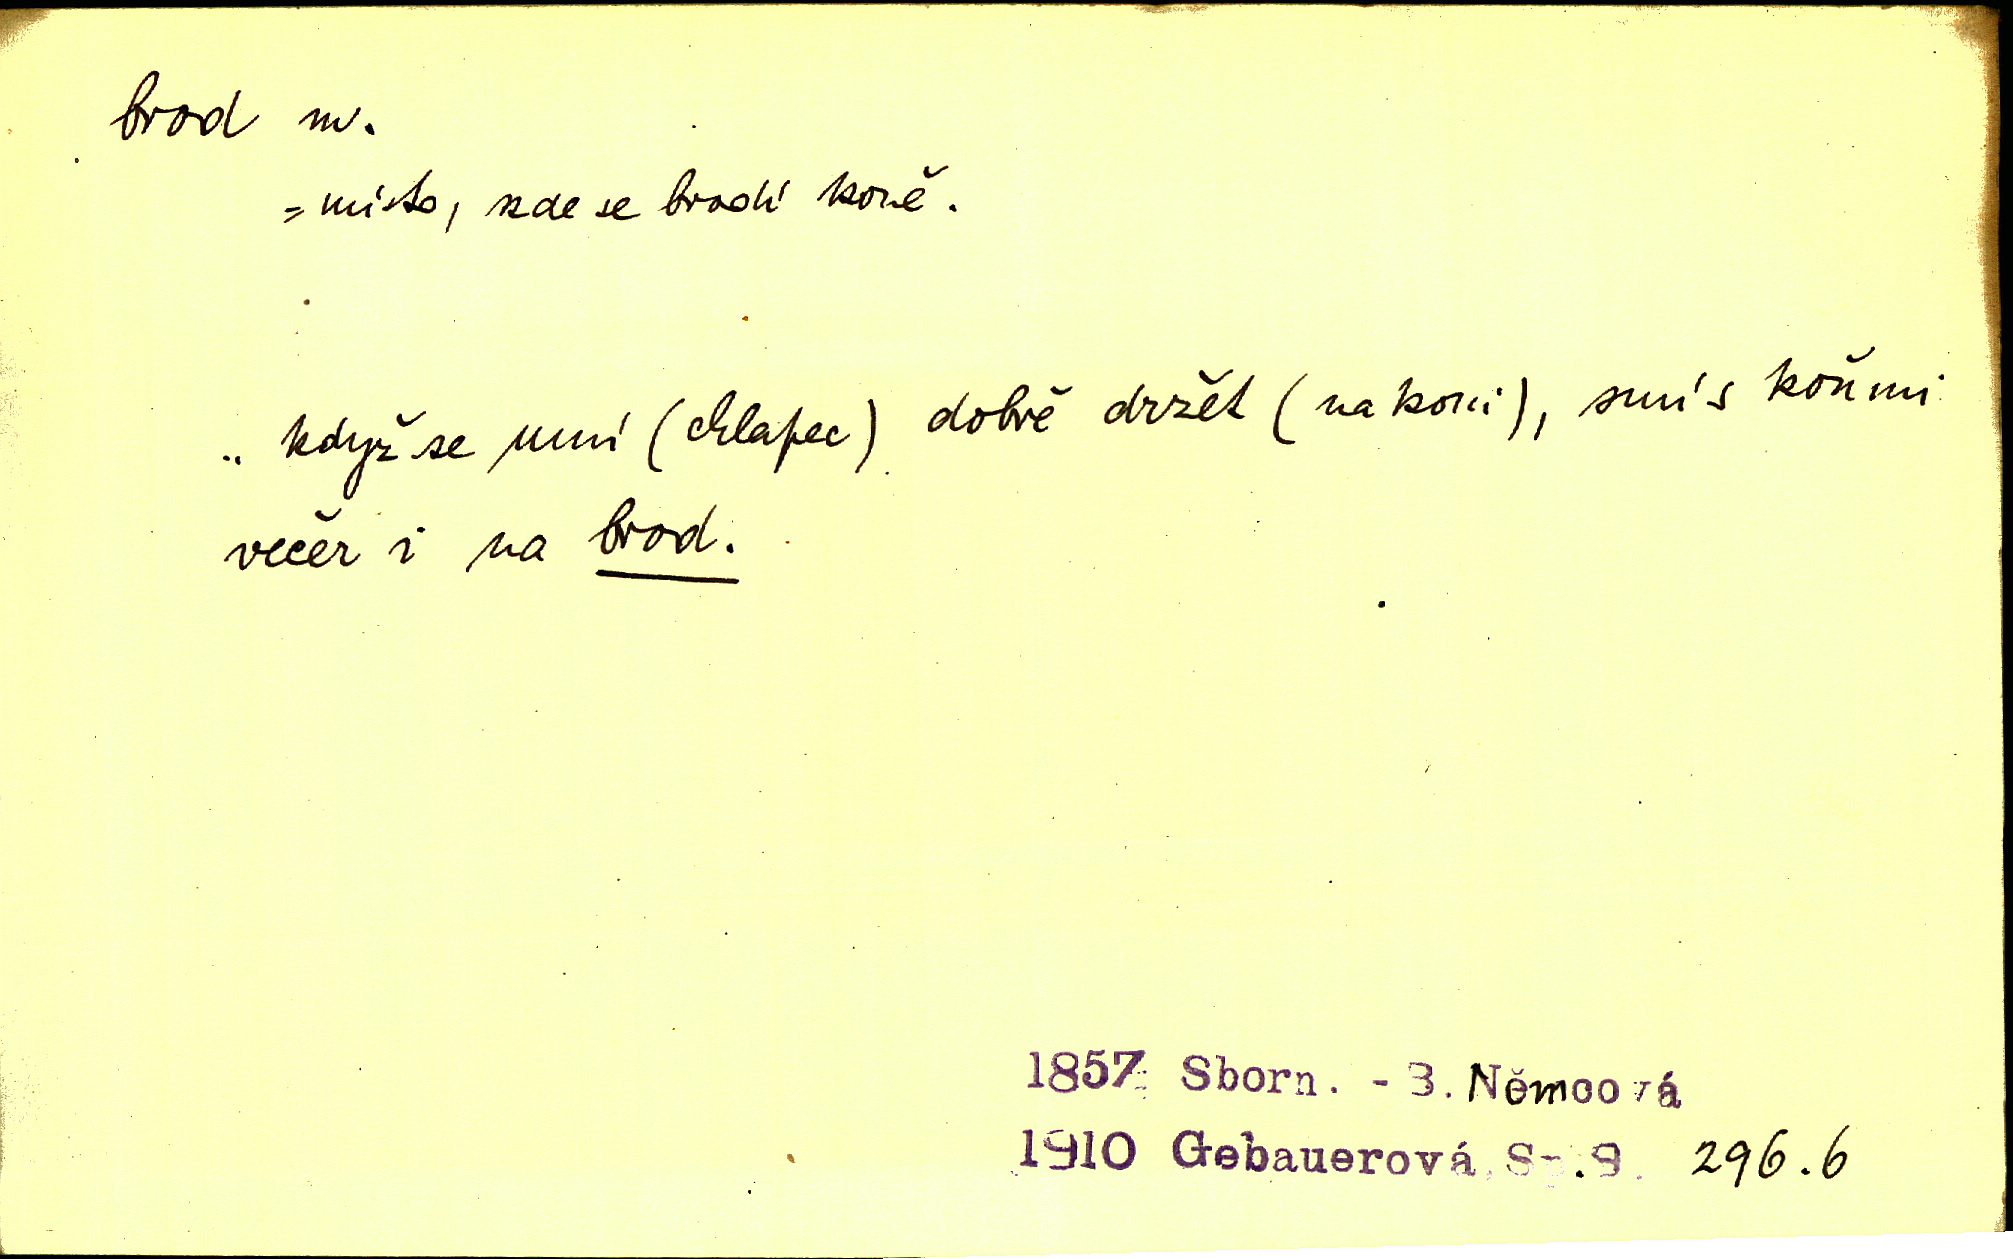 brod m.
= místo, kde se brodí koně.
.. když se umí (chlapec) dobře držet (na koni), smí s koňmi
večer i na brod.
1857 Sborn. - B. Němcová
1910 Gebauerová, Sp. 9. 296.6